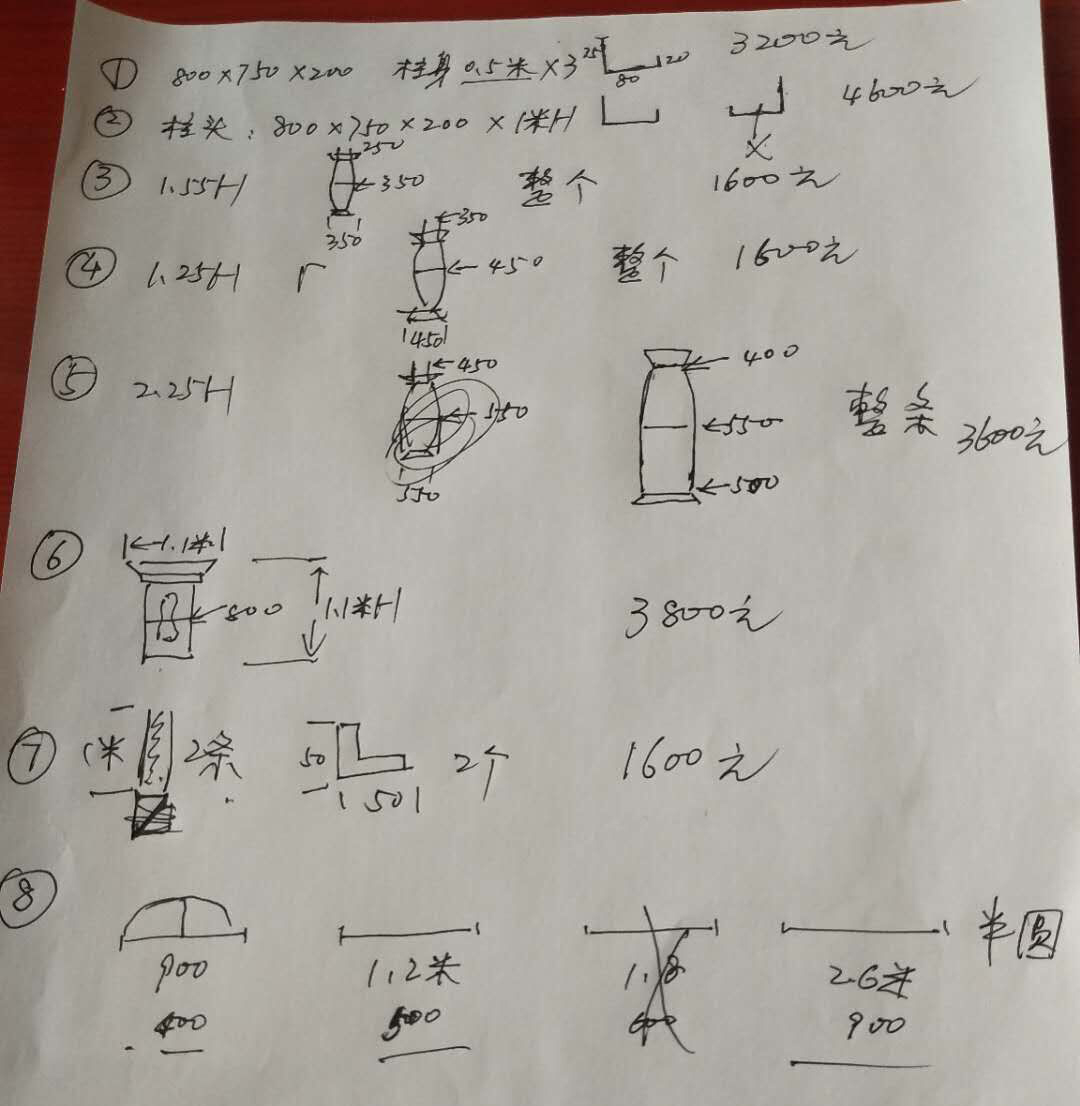 ① 800×750×200 柱身 0.5米×3 25 80 20 3200元
② 柱头:800×750×200×1米H 4600元
③ 1.55H 250 350 350 整个 1600元
④ 1.25H 350 450 450 整个 1600元
⑤ 2.25H 450 550 550 400 550 500 整条 3600元
⑥ 1.1米 800 1.1米H 3800元
⑦ 1米 2条 50 50 2个 1600元
⑧ 900 1.2米 1.8 2.6米 半圆
400 500 600 900